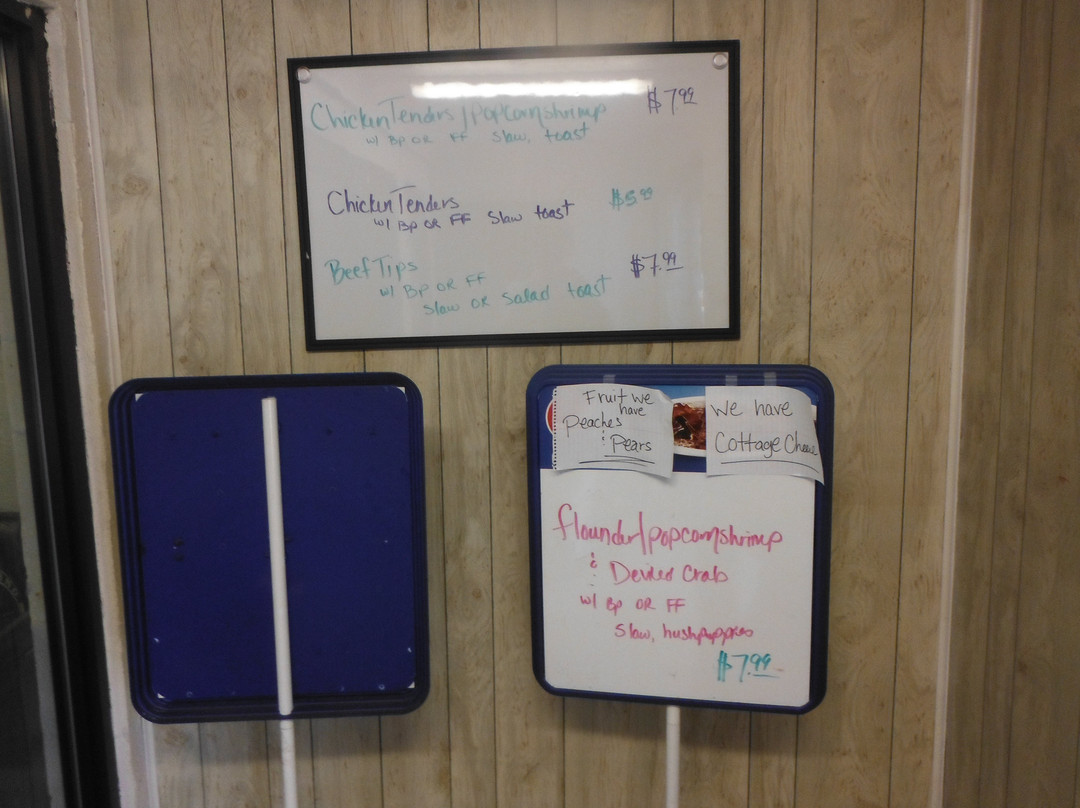 Chicken Tenders/Popcorn shrimp $7.99
w/ BP OR FF Slaw, toast
Chicken Tenders $5.99
w/ BP OR FF Slaw toast
Beef Tips $7.99
w/ BP OR FF
Slaw OR Salad toast
Fruit we
have
Peaches
&
Pears
We have
Cottage Cheese
flounder/popcorn shrimp
& Deviled Crab
w/ BP OR FF
Slaw, hushpuppies
$7.99